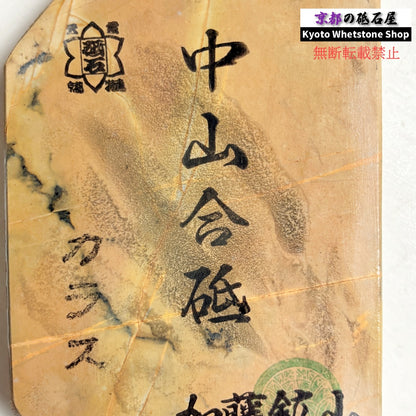 京都の砥石屋
Kyoto Whetstone Shop
無断転載禁止
砥石
中山合砥
カラス
加藤鉱山